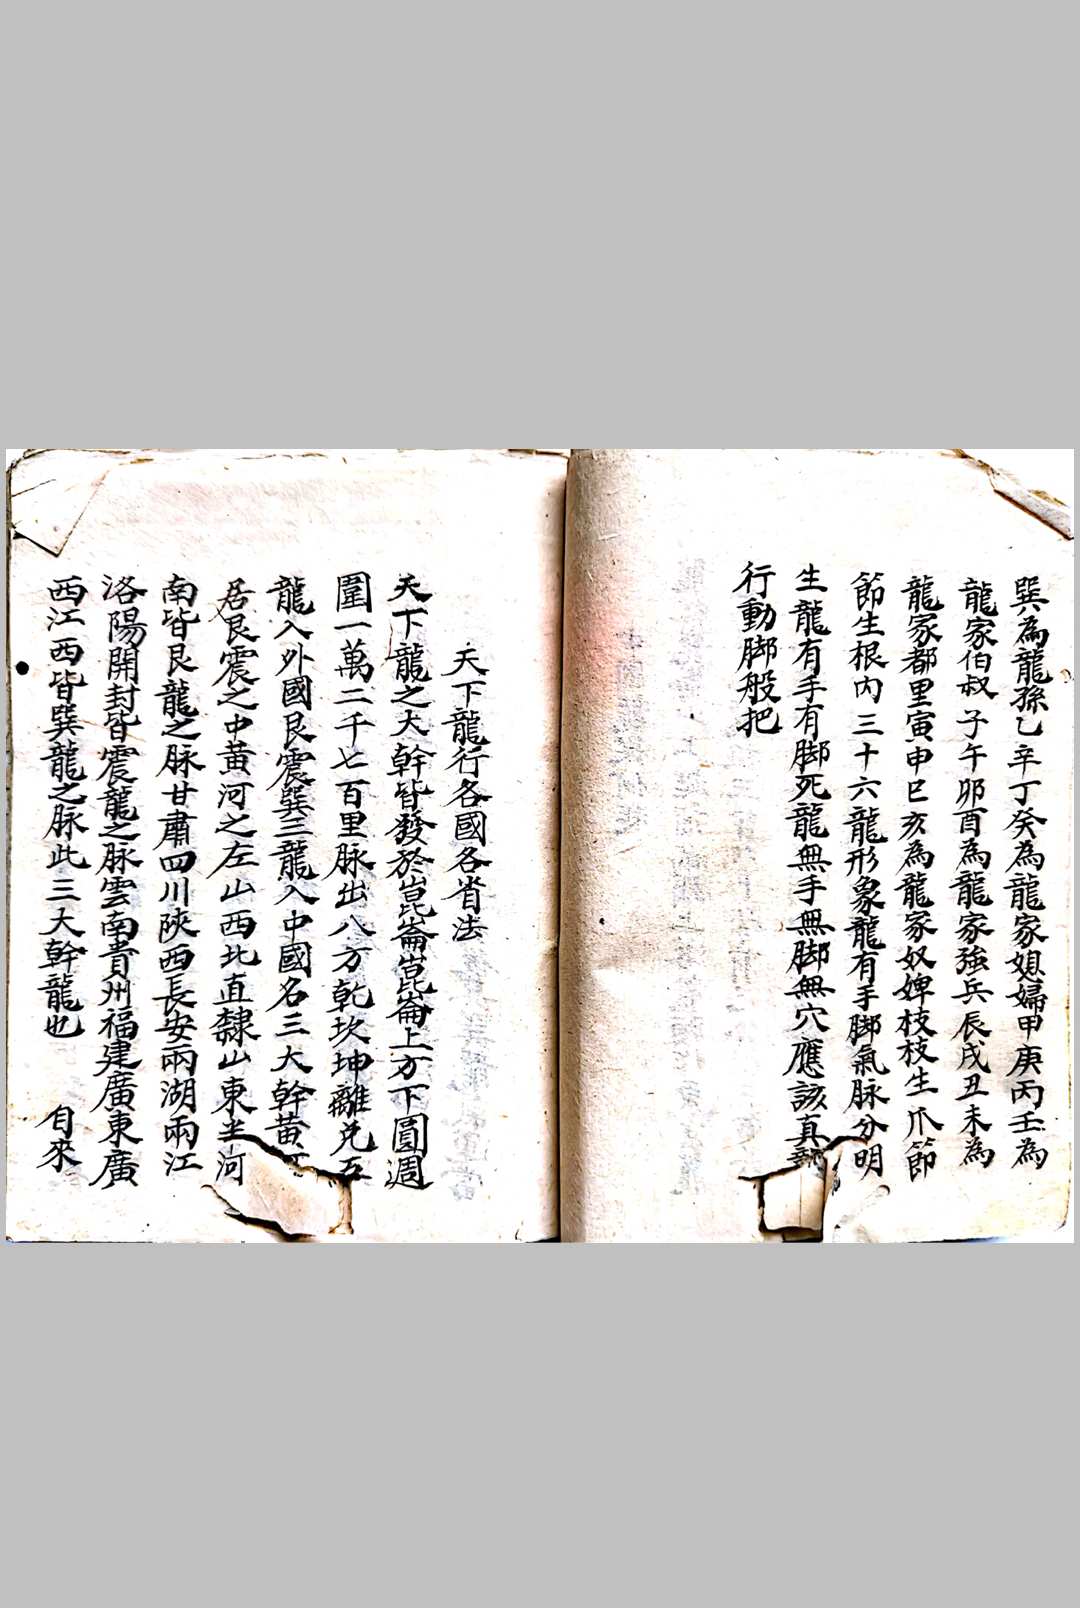 巽為龍孫乙辛丁癸為龍家媳婦甲庚丙壬為
龍家伯叔子午卯酉為龍家強兵辰戌丑未為
龍家都里寅申巳亥為龍家奴婢枝枝生爪節
節生根內三十六龍形象龍有手脚氣脉分明
生龍有手有脚死龍無手無脚無穴應該真龍
行動脚般把
天下龍行各國各省法
天下龍之大幹皆發於崑崙崑崙上方下圓週
圍一萬二千七百里脉出八方乾坎坤離兑五
龍入外國艮震巽三龍入中國名三大幹黄
居艮震之中黄河之左山西北直隸山東半河
南皆艮龍之脉甘肅四川陝西長安兩湖兩江
洛陽開封皆震龍之脉雲南貴州福建廣東廣
西江西皆巽龍之脉此三大幹龍也 自來